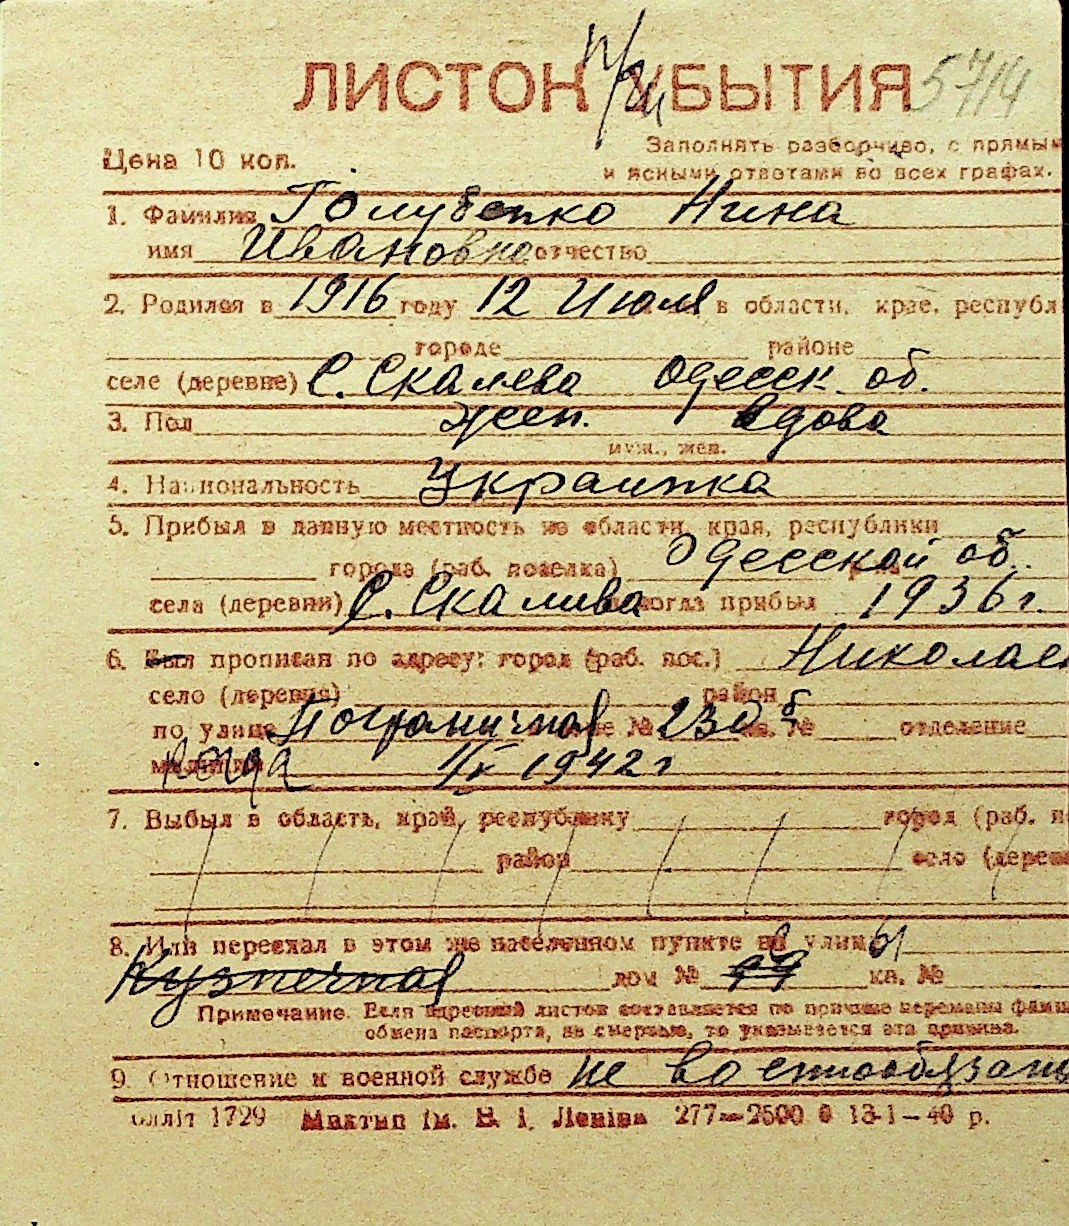 ЛИСТОК УБЫТИЯ 5714
Цена 10 коп.
Заполнять разборчиво, с прямым
и ясными ответами во всех графах.
1. Фамилия Голубенко Нина
имя Ивановно отчество
2. Родился в 1916 году 12 Июля в области, крае, республ
городе районе
селе (деревне) С. Скалева Одесск. об.
3. Пол жен. Вдова
муж., жен.
4. Национальность Украинка
5. Прибыл в данную местность из области, края, республики
города (раб. поселка) Одесской об.
села (деревни) С. Скалива когда прибыл 1936 г.
6. Был прописан по адресу: город (раб. пос.) Николаев
село (деревня) район
по улице Пограничная № 230 б кв. № отделение
милиции 1/IX 1942 г
7. Выбыл в область, край, республику город (раб. п
район село (дерев
8. Или переехал в этом же населенном пункте в улицы
Кузнечная дом № 99 кв. №
Примечание. Если адресный листок составляется по причине перемены фами
обмена паспорта, не смертью, то указывается эта причина.
9. Отношение к военной службе не военнообязан
облліт 1729 Миктип ім. В. І. Леніна 277—2500 0 13-1-40 р.